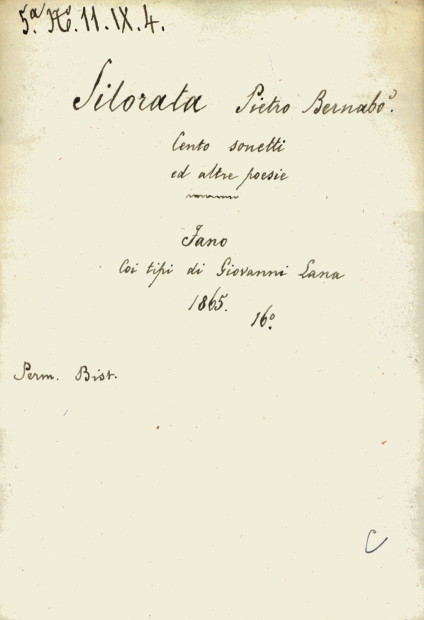 5.ª H.º 11. IX. 4.
Silorata Pietro Bernabò.
Cento sonetti
ed altre poesie
Fano
Coi tipi di Giovanni Lana
1865.
16º.
Perm. Bist.
C